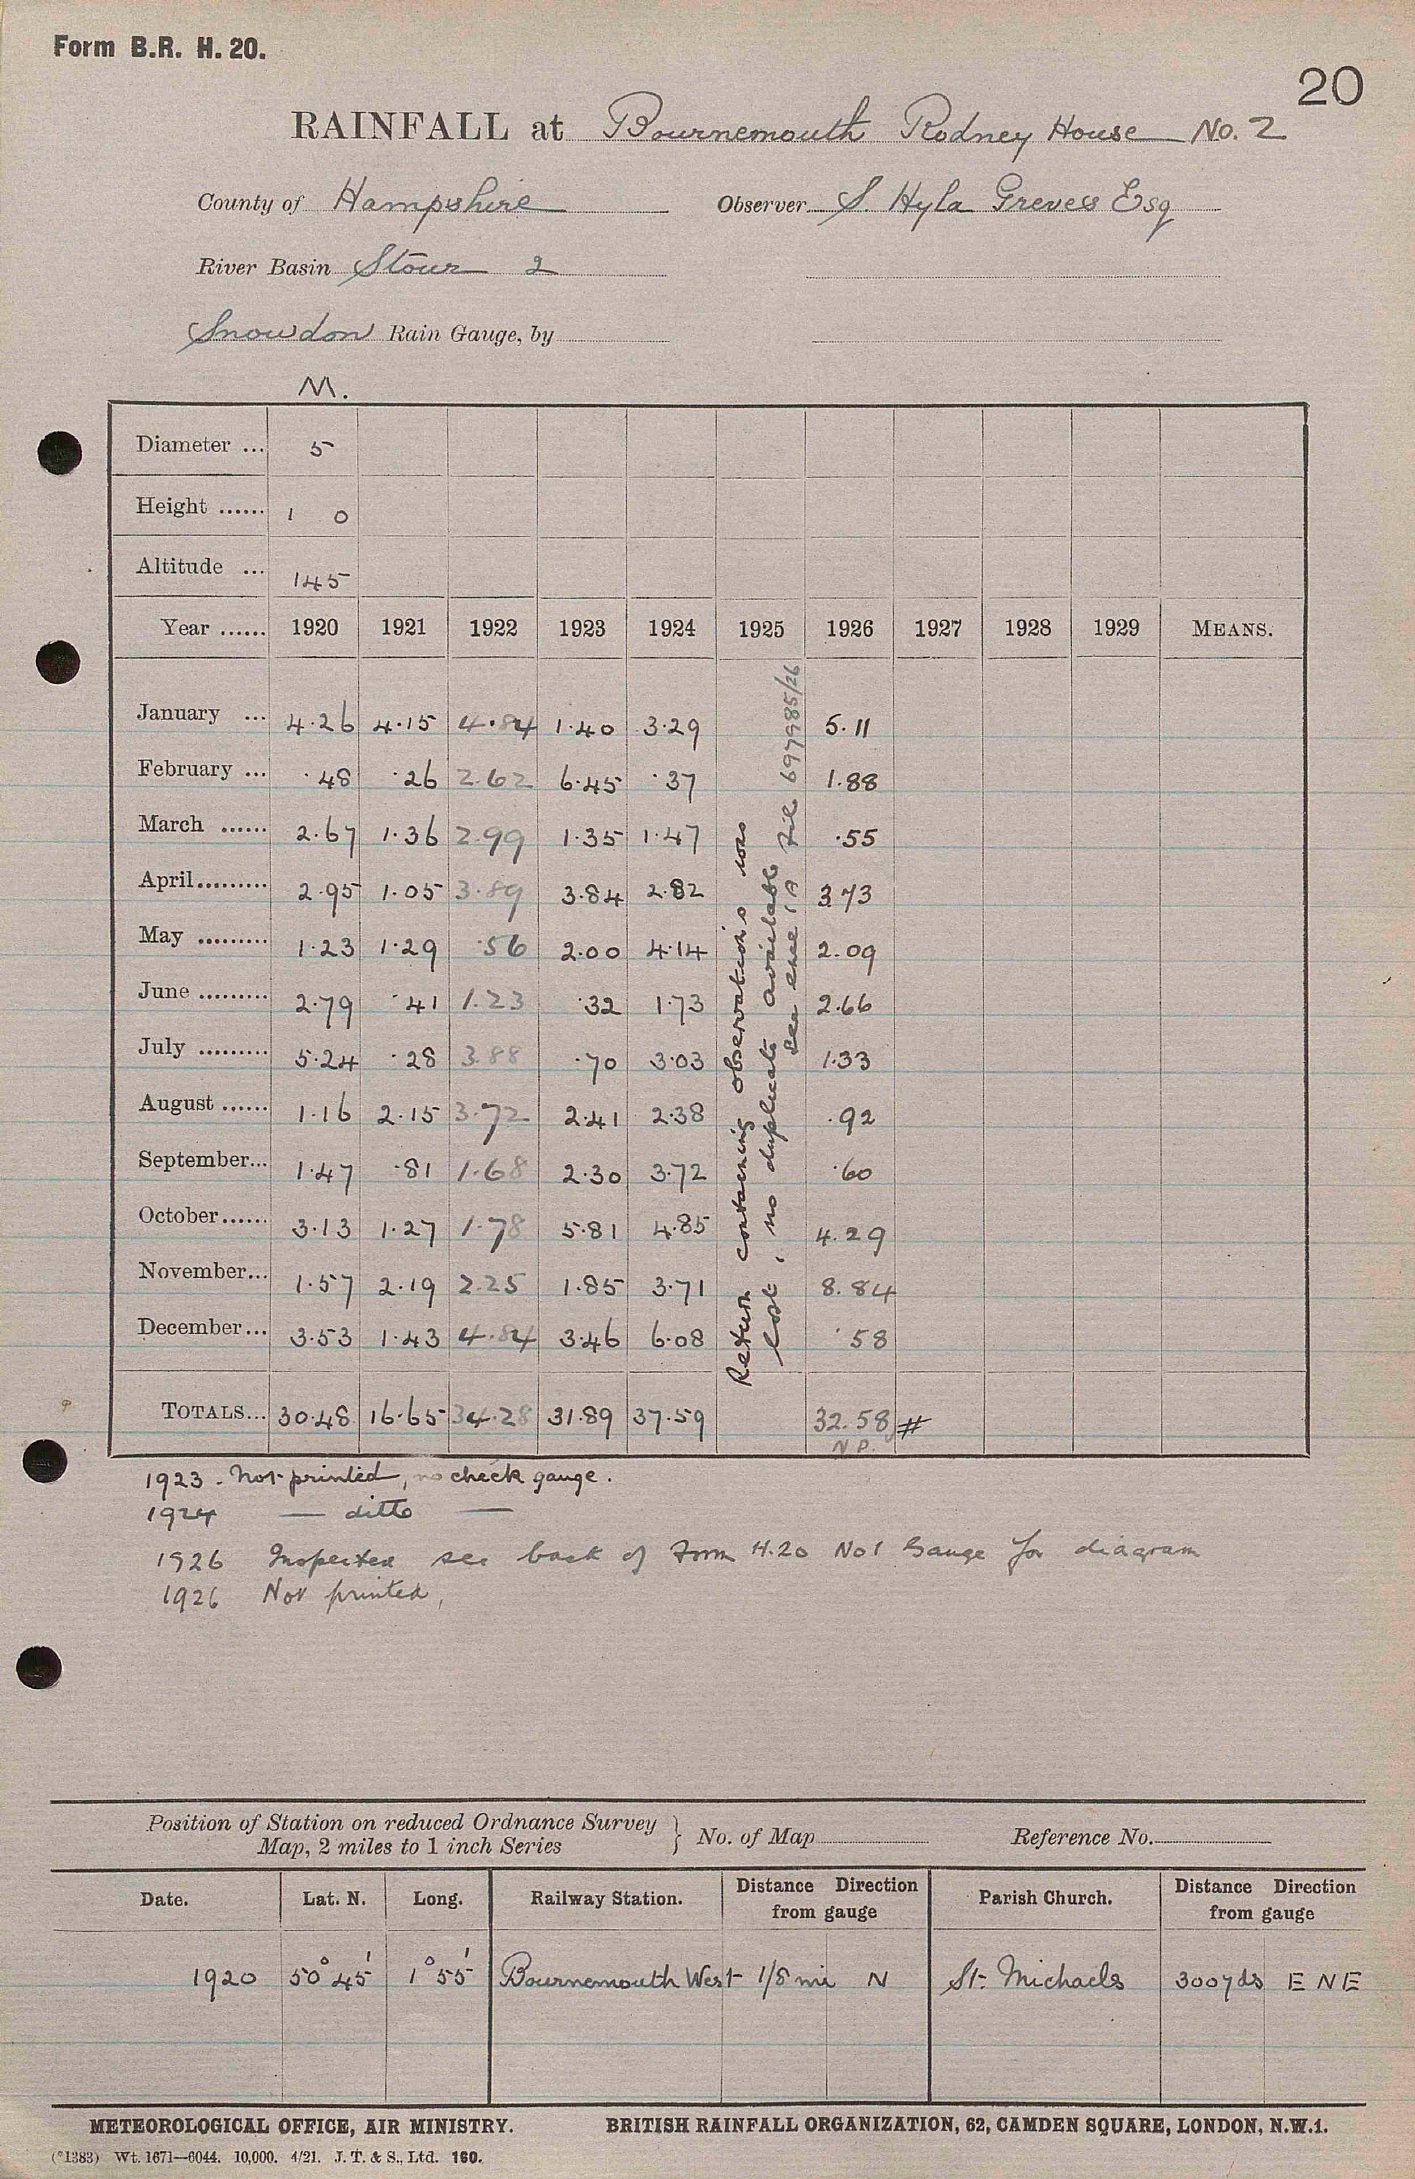 Form B.R. H. 20.
20
RAINFALL at Bournemouth Rodney House No. 2
County of Hampshire Observer S. Hyla Greves Esq
River Basin Stour 2
Snowdon Rain Gauge, by
M.
Diameter ... 5
Height ...... 1 0
Altitude ... 145
Year ...... 1920 1921 1922 1923 1924 1925 1926 1927 1928 1929 MEANS.
January ... 4.26 4.15 4.84 1.40 3.29 5.11
February ... .48 .26 2.62 6.45 .37 1.88
March ...... 2.67 1.36 2.99 1.35 1.47 .55
April......... 2.95 1.05 3.89 3.84 2.82 3.73
May ......... 1.23 1.29 .56 2.00 4.14 2.09
June ......... 2.79 .41 1.23 .32 1.73 2.66
July ......... 5.24 .28 3.88 .70 3.03 1.33
August ...... 1.16 2.15 3.72 2.41 2.38 .92
September... 1.47 .81 1.68 2.30 3.72 .60
October...... 3.13 1.27 1.78 5.81 4.85 4.29
November... 1.57 2.19 2.25 1.85 3.71 8.84
December... 3.53 1.43 4.84 3.46 6.08 .58
TOTALS... 30.48 16.65 34.28 31.89 37.59 32.58 #
N P.
Return containing observations was
lost, no duplicate available
See file 697985/26
1923 - Not printed, no check gauge.
1924 — ditto —
1926 Inspected see back of Form H.20 No 1 Gauge for diagram
1926 Not printed,
Position of Station on reduced Ordnance Survey
Map, 2 miles to 1 inch Series } No. of Map Reference No.
Date. Lat. N. Long. Railway Station. Distance Direction from gauge Parish Church. Distance Direction from gauge
1920 50° 45' 1° 55' Bournemouth West 1/8 mi N St. Michaels 300 yds E N E
METEOROLOGICAL OFFICE, AIR MINISTRY. BRITISH RAINFALL ORGANIZATION, 62, CAMDEN SQUARE, LONDON, N.W.1.
(*1383) Wt. 1671—6044. 10,000. 4/21. J. T. & S., Ltd. 160.